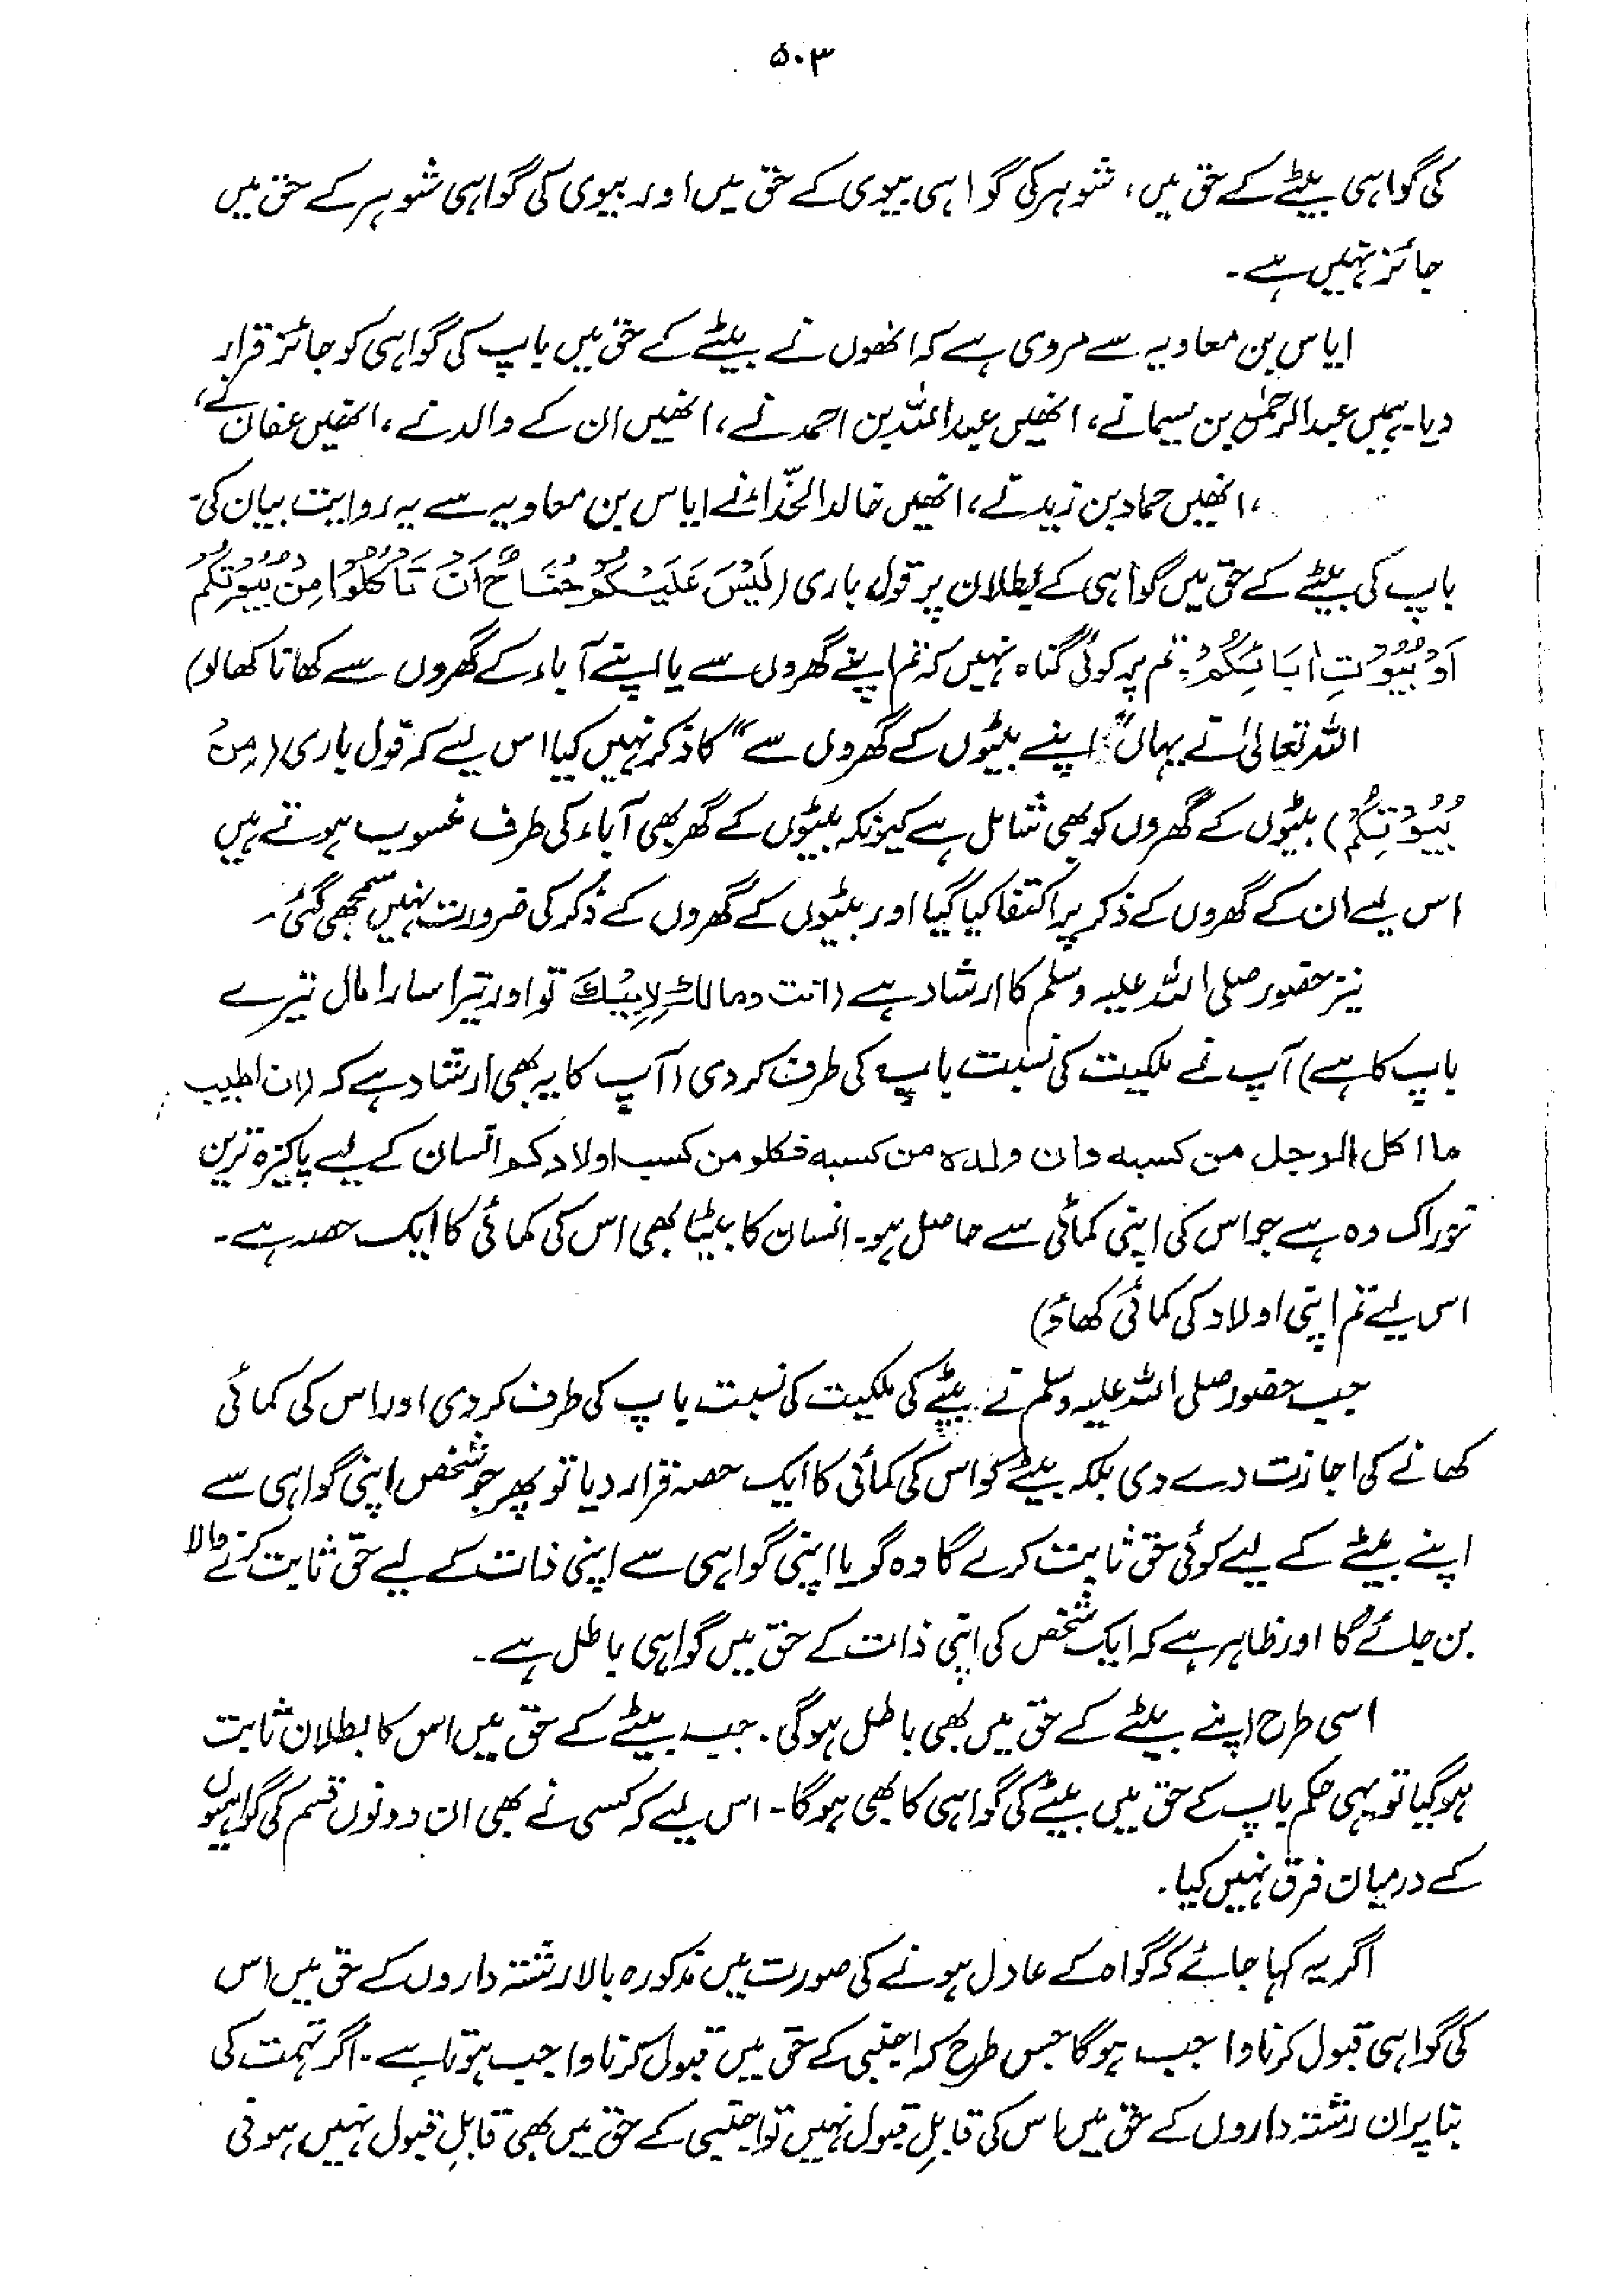 ۵۰۳
کی گواہی بیٹے کے حق میں، شوہر کی گواہی بیوی کے حق میں اور بیوی کی گواہی شوہر کے حق میں
جائز نہیں ہے۔
ایاس بن معاویہ سے مروی ہے کہ انھوں نے بیٹے کے حق میں باپ کی گواہی کو جائز قرار
دیا۔ ہمیں عبدالرحمٰن بن سیما نے، انھیں عبداللہ بن احمد نے، انھیں ان کے والد نے، انھیں عفان نے،
، انھیں حماد بن زید نے، انھیں خالد الحذّاء نے ایاس بن معاویہ سے یہ روایت بیان کی۔
باپ کی بیٹے کے حق میں گواہی کے بطلان پر قول باری (لَیْسَ عَلَیْکُمْ جُنَاحٌ اَنْ تَاْکُلُوْا مِنْ بُیُوْتِکُمْ
اَوْ بُیُوْتِ اٰبَائِکُمْ۔ تم پر کوئی گناہ نہیں کہ تم اپنے گھروں سے یا اپنے آباء کے گھروں سے کھانا کھالو)
اللہ تعالیٰ نے یہاں "اپنے بیٹوں کے گھروں سے" کا ذکر نہیں کیا اس لیے کہ قول باری (مِنْ
بُیُوْتِکُمْ) بیٹوں کے گھروں کو بھی شامل ہے کیونکہ بیٹوں کے گھر بھی آباء کی طرف منسوب ہوتے ہیں
اس لیے ان کے گھروں کے ذکر پر اکتفا کیا گیا اور بیٹوں کے گھروں کے ذکر کی ضرورت نہیں سمجھی گئی۔
نیز حضور صلی اللہ علیہ وسلم کا ارشاد ہے (انت ومالک لِاَبِیْکَ تو اور تیرا سارا مال تیرے
باپ کا ہے) آپ نے ملکیت کی نسبت باپ کی طرف کر دی (آپ کا یہ بھی ارشاد ہے کہ (ان اطیب
ما اکل الرجل من کسبہ وان ولدہ من کسبہ فکلو من کسب اولادکم انسان کے لیے پاکیزہ ترین
خوراک وہ ہے جو اس کی اپنی کمائی سے حاصل ہو۔ انسان کا بیٹا بھی اس کی کمائی کا ایک حصہ ہے۔
اس لیے تم اپنی اولاد کی کمائی کھاؤ)
جب حضور صلی اللہ علیہ وسلم نے بیٹے کی ملکیت کی نسبت باپ کی طرف کر دی اور اس کی کمائی
کھانے کی اجازت دے دی بلکہ بیٹے کو اس کی کمائی کا ایک حصہ قرار دیا تو پھر جو شخص اپنی گواہی سے
اپنے بیٹے کے لیے کوئی حق ثابت کرے گا وہ گویا اپنی گواہی سے اپنی ذات کے لیے حق ثابت کرنے والا
بن جائے گا اور ظاہر ہے کہ ایک شخص کی اپنی ذات کے حق میں گواہی باطل ہے۔
اسی طرح اپنے بیٹے کے حق میں بھی باطل ہو گی۔ جب بیٹے کے حق میں اس کا بطلان ثابت
ہو گیا تو یہی حکم باپ کے حق میں بیٹے کی گواہی کا بھی ہوگا۔ اس لیے کہ کسی نے بھی ان دونوں قسم کی گواہیوں
کے درمیان فرق نہیں کیا۔
اگر یہ کہا جائے کہ گواہ کے عادل ہونے کی صورت میں مذکورہ بالا رشتہ داروں کے حق میں اس
کی گواہی قبول کرنا واجب ہوگا جس طرح کہ اجنبی کے حق میں قبول کرنا واجب ہوتا ہے۔ اگر تہمت کی
بنا پر ان رشتہ داروں کے حق میں اس کی قابلِ قبول نہیں تو اجنبی کے حق میں بھی قابلِ قبول نہیں ہونی